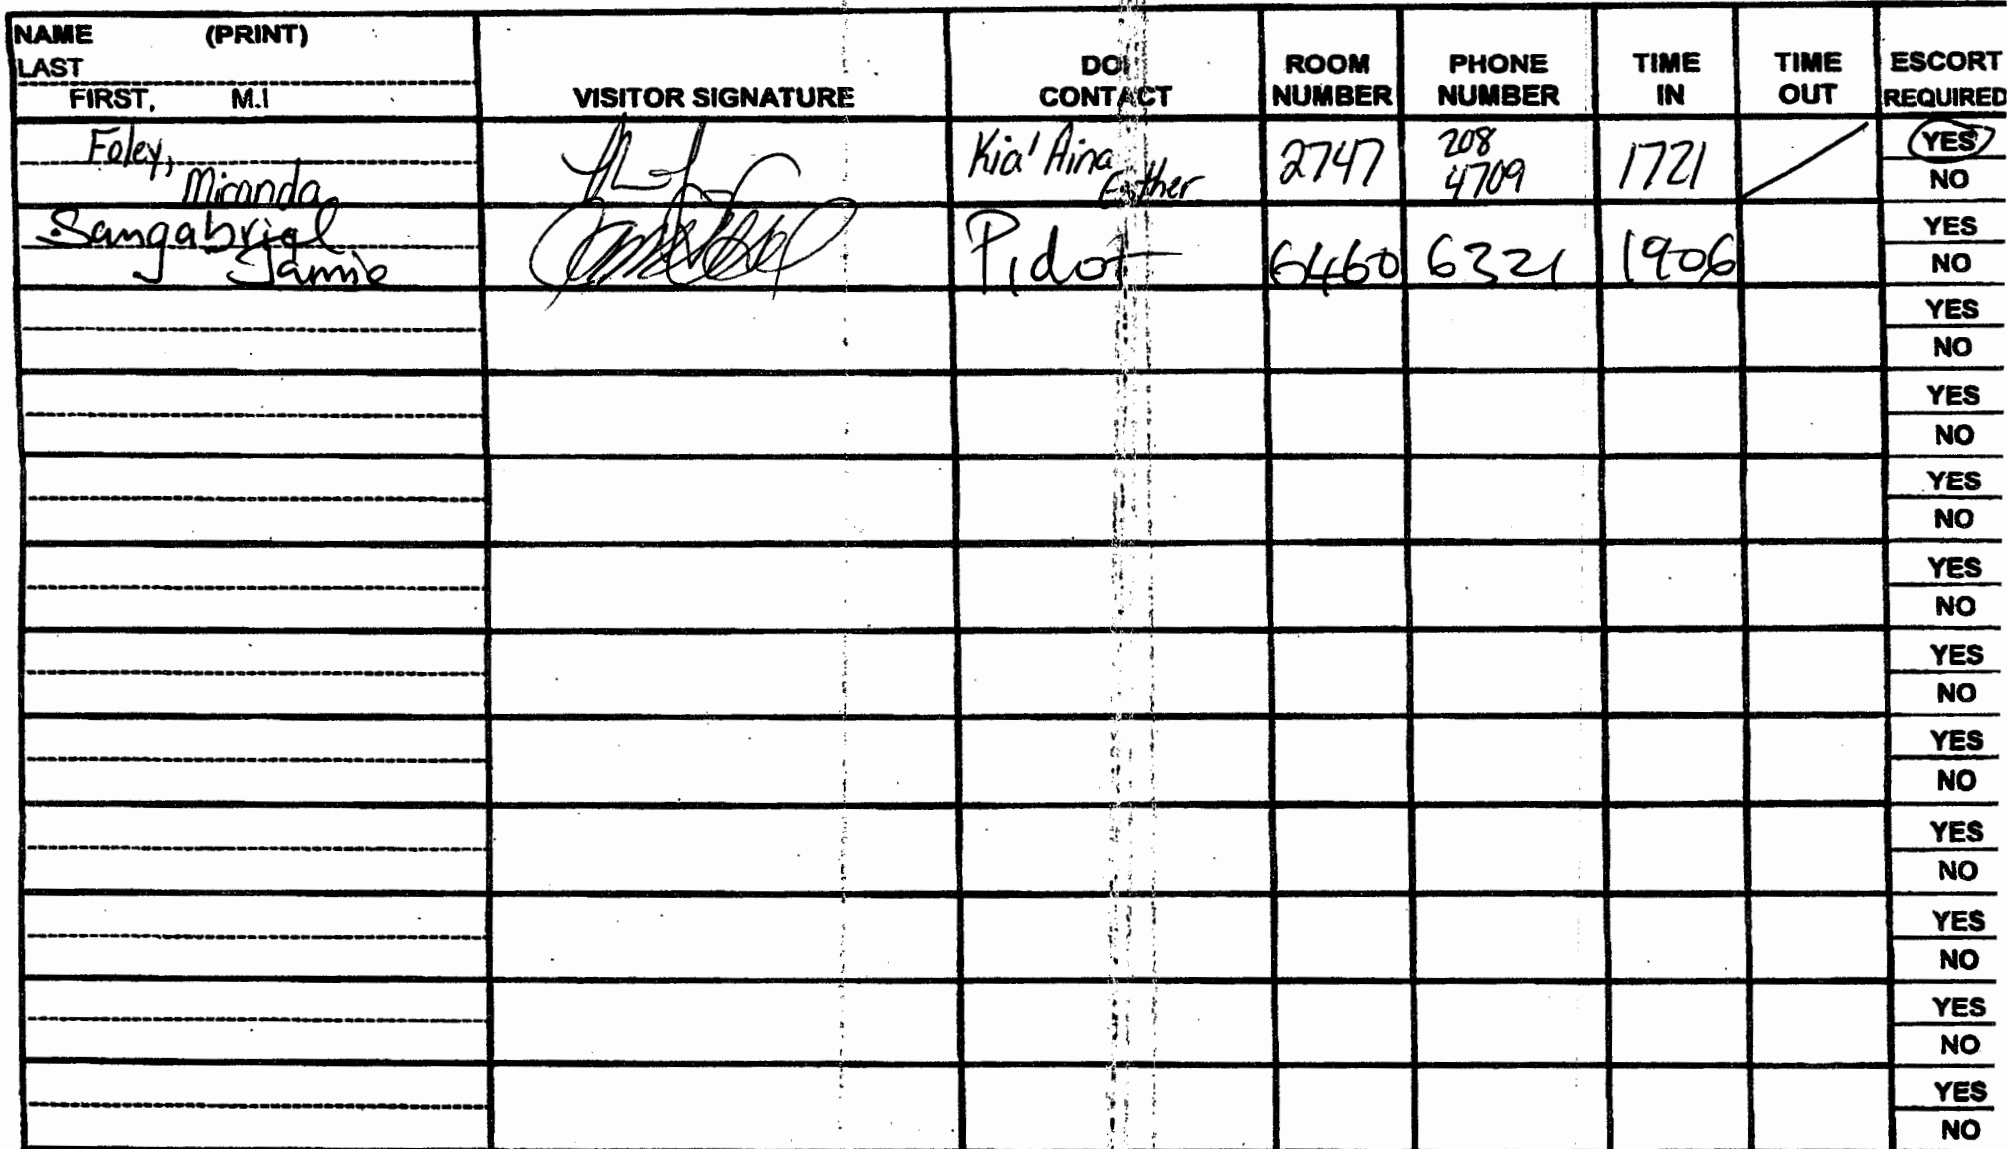 NAME (PRINT)
LAST
FIRST, M.I
VISITOR SIGNATURE
DOI
CONTACT
ROOM
NUMBER
PHONE
NUMBER
TIME
IN
TIME
OUT
ESCORT
REQUIRED
Foley,
Miranda
Kia'Aina
Esther
2747
208
4709
1721
YES
NO
Sangabriel
Jamie
Pidot
6460
6321
1906
YES
NO
YES
NO
YES
NO
YES
NO
YES
NO
YES
NO
YES
NO
YES
NO
YES
NO
YES
NO
YES
NO